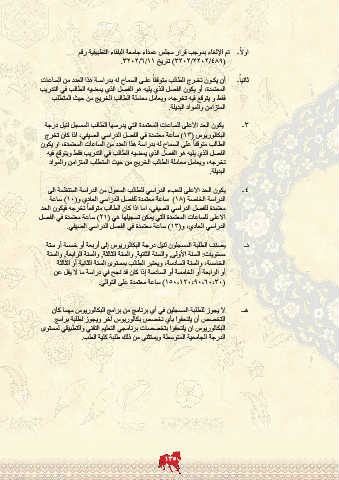 اولاً- تم الإلغاء بموجب قرار مجلس عمداء جامعة البلقاء التطبيقية رقم
(٣٢٠٢/٢٢٠٢/٤٨٩) تاريخ ٣٢٠٢/٦/١١.
ثانياً- أن يكون تخرج الطالب متوقفاً على السماح له بدراسة هذا العدد من الساعات
المعتمدة، أو يكون الفصل الذي يليه هو الفصل الذي يمضيه الطالب في التدريب
فقط و يتوقع فيه تخرجه، ويعامل معاملة الطالب الخريج من حيث المتطلب
المتزامن والمواد البديلة.
٣- يكون الحد الأعلى للساعات المعتمدة التي يدرسها الطالب المسجل لنيل درجة
البكالوريوس (١٣) ساعة معتمدة في الفصل الدراسي الصيفي، إذا كان تخرج
الطالب متوقفاً على السماح له بدراسة هذا العدد من الساعات المعتمدة، أو يكون
الفصل الذي يليه هو الفصل الذي يمضيه الطالب في التدريب فقط ويتوقع فيه
تخرجه، ويعامل معاملة الطالب الخريج من حيث المتطلب المتزامن والمواد
البديلة.
٤- يكون الحد الأعلى للعبء الدراسي للطالب المحول من الدراسة المنتظمة الى
الدراسة الخاصة (١٨) ساعة معتمدة للفصل الدراسي العادي، و(١٠) ساعة
معتمدة للفصل الدراسي الصيفي، اما اذا كان الطالب متوقعاً تخرجه فيكون الحد
الاعلى للساعات المعتمدة التي يمكن تسجيلها هي (٢١) ساعة معتمدة في الفصل
الدراسي العادي، و(١٣) ساعة معتمدة في الفصل الدراسي الصيفي.
د- يصنف الطلبة المسجلون لنيل درجة البكالوريوس إلى أربعة أو خمسة أو ستة
مستويات: السنة الأولى, والسنة الثانية, والسنة الثالثة, والسنة الرابعة, والسنة
الخامسة، والسنة السادسة، ويعتبر الطالب بمستوى السنة الثانية أو الثالثة
أو الرابعة أو الخامسة أو السادسة إذا كان قد نجح في دراسة ما لا يقل عن
(٣٠،٦٠،٩٠،١٢٠،١٥٠) ساعة معتمدة على التوالي.
هـ- لا يجوز للطلبة المسجلين في أي برنامج من برامج البكالوريوس مهما كان
التخصص أن يلتحقوا بأي تخصص بكالوريوس آخر ويجوز لطلبة برامج
البكالوريوس ان يلتحقوا بتخصصات برنامجي التعليم التقني والتطبيقي لمستوى
الدرجة الجامعية المتوسطة ويستثنى من ذلك طلبة كلية الطب.